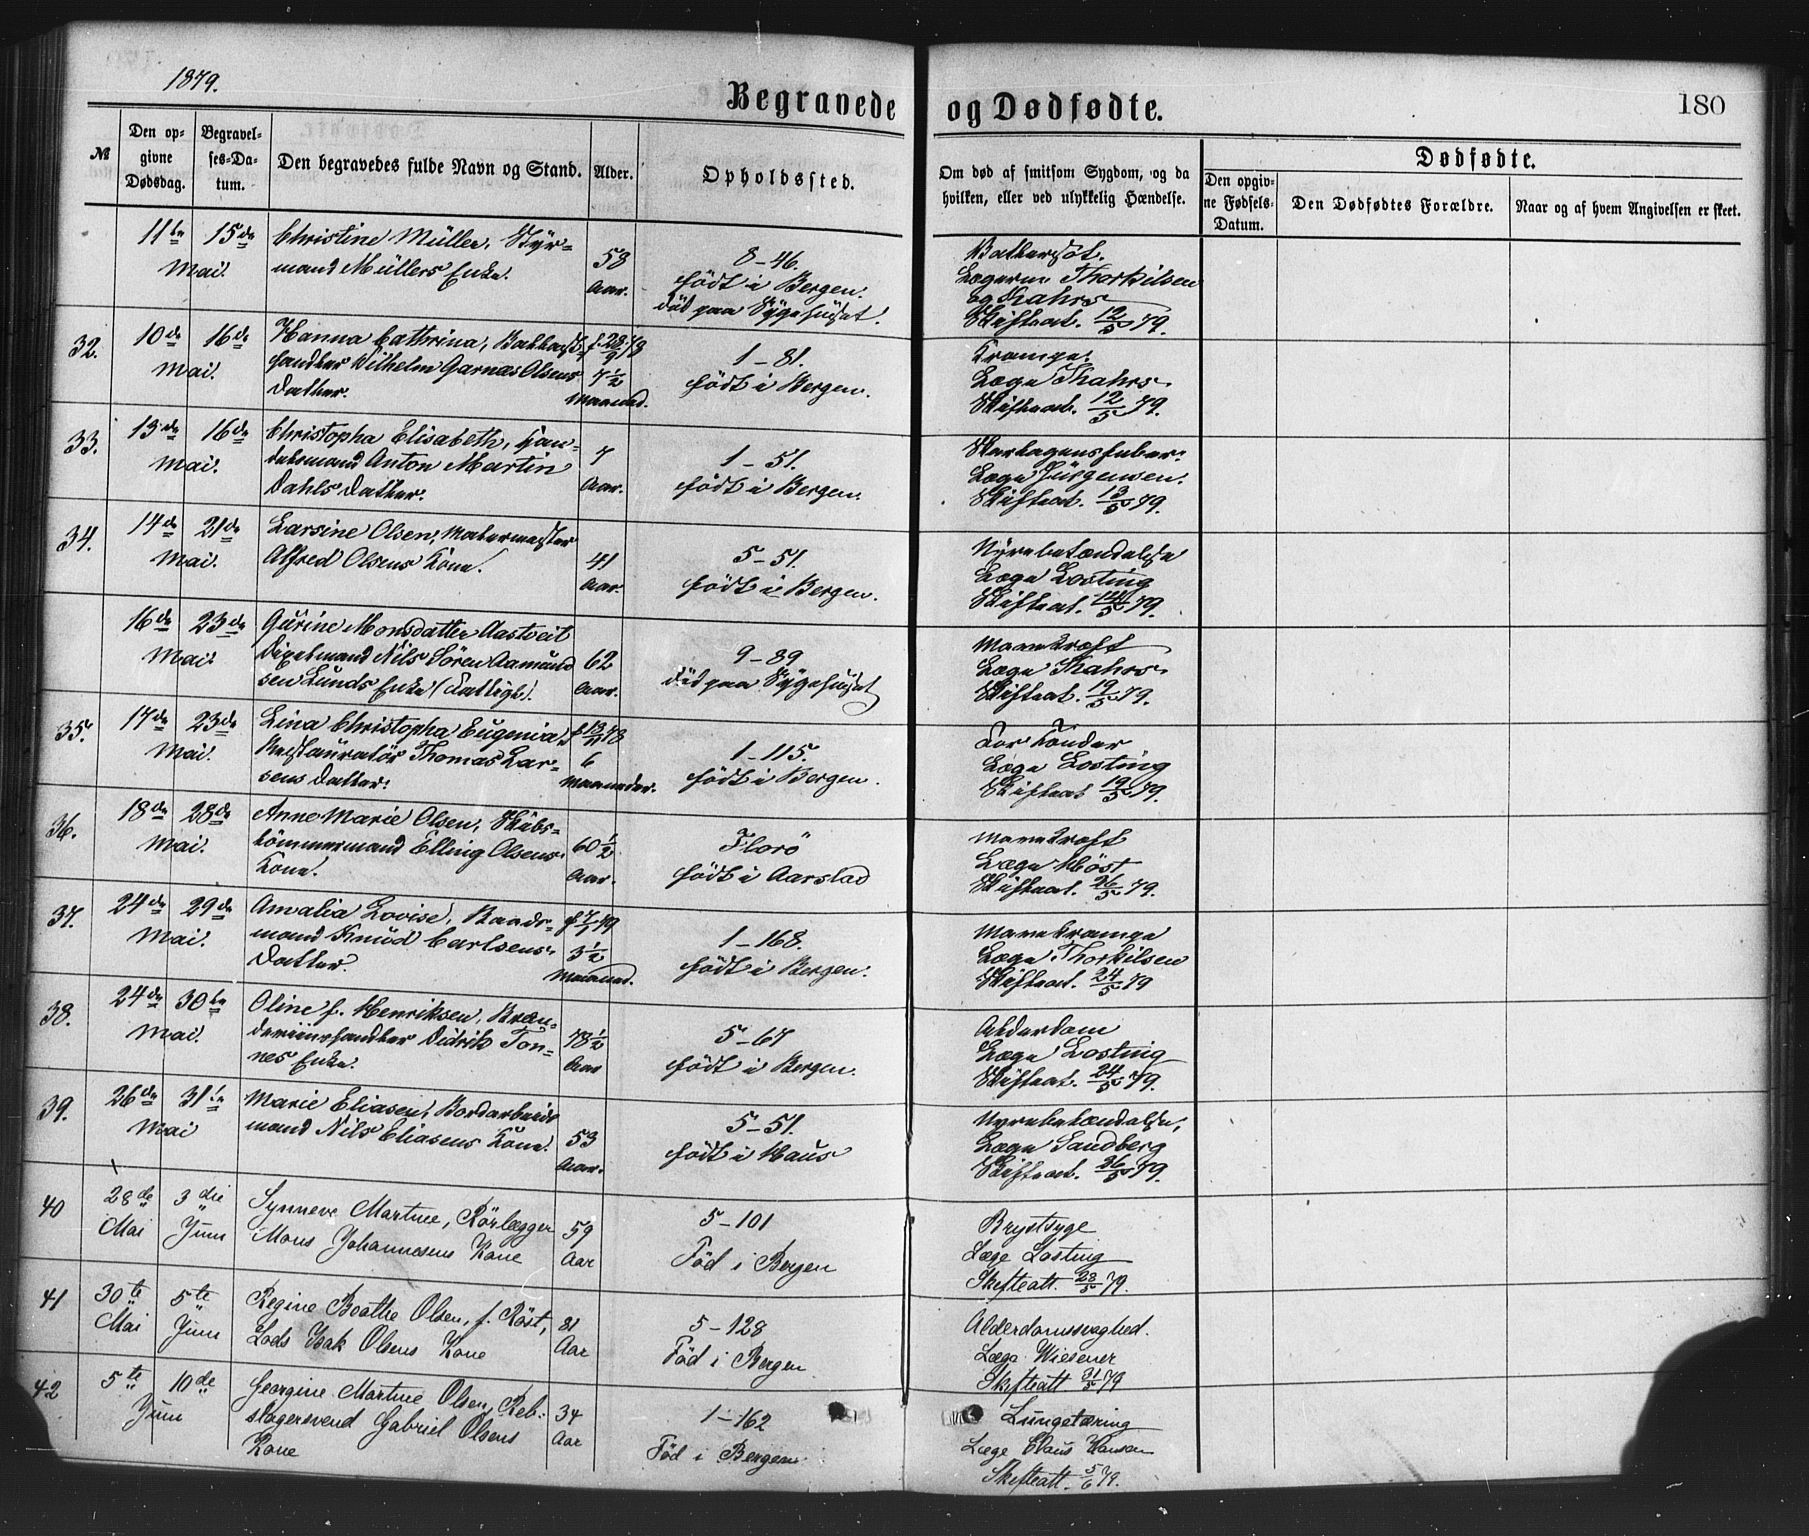 1879.
Begravede og Dødfødte.
180
№
Den op-
givne
Dødsdag.
Begravel-
ses-Da-
tum.
Den begravedes fulde Navn og Stand.
Alder.
Opholdssted.
Om død af smitsom Sygdom, og da
hvilken, eller ved ulykkelig Hændelse.
Dødfødte.
Den opgiv-
ne Fødsels-
Datum.
Den Dødfødtes Forældre.
Naar og af hvem Angivelsen er skeet.
11te Mai.
15de
Christine Müller, Styr-
mand Müllers Enke.
58
Aar.
8-46.
født i Bergen.
død paa Sygehuset.
Vattersot.
Lægerne Thorkilsen
og Krahrs
Skifteat. 12/5 79.
32.
10de Mai.
16de
Hanna Cathrina,
handler Wilhelm Garnæs Olsens
Datter.
f. 28/9 78
7 1/2
Maaned.
1-81.
født i Bergen.
Krampe.
Læge
Skifteat. 12/5 79.
33.
13de Mai.
16de
Christopha Elisabeth, Han-
delsmand Anton Martin
Dahls Datter.
7
Aar.
1-51.
født i Bergen.
Skarlagensfeber.
Læge Jürgensen.
Skifteat. 13/5 79.
34.
14de Mai.
21de
Larsine Olsen, Malermester
Alfred Olsens Kone.
41
Aar.
5-51.
født i Bergen.
Nyrebetændelse
Læge Losting
Skifteat. 14/5 79.
16de Mai.
23de
Gurine Monsdatter Aastveit
Nils Sören Aamund
sen Lunds Enke (Fattigl.)
62
Aar.
9-89
død paa Sygehuset
Mavekræft
Læge
Skifteat. 19/5 79.
35.
17de Mai.
23de
Lina Christopha Eugenia,
Restauratör Thomas Lar-
sens Datter.
f 13/11 78
6
Maaneder.
1-115.
født i Bergen.
For Tänder
Læge Losting
Skifteat 19/5 79.
36.
18de Mai.
28de
Anne Marie Olsen, Skibs-
tömmermand Elling Olsens
Kone.
60 1/2
Aar.
Florö
født i Aarstad
Mavekræft
Læge Höst
Skifteat. 26/5 79.
37.
24de Mai.
29de
Amalia Lovise, Baads-
mand Knud Carlsens
Datter.
f 7/2 79
3 1/2
Maaned.
1-168.
født i Bergen.
Mavekrampe
Læge Thorkilsen
Skifteat. 24/5 79
38.
24de Mai.
30te
Oline f. Henriksen, Bræn-
deviinshandler Didrik Ton-
nes Enke.
78 1/2
Aar
5-67
født i Bergen.
Alderdom
Læge Losting
Skifteat. 24/5 79.
39.
26de Mai
31te
Marie Eliasen, Bordarbeids
mand Nils Eliasens Kone.
53
Aar.
5-51.
født i Haus
Nyrebetændelse,
Læge Sandberg
Skifteat. 26/5 79.
40
28de
Mai
3die
Juni
Synneve Martine, Rörlægger
Mons Johannesens Kone
59
Aar
5-101
Föd i Bergen
Brystsyge
Læge Losting
Skifteatt. 28/5 79.
41
30te
Mai
5te
Juni
Regine Beathe Olsen, f. Röst,
Lods Isak Olsens Kone
81
Aar
5-128
Föd i Bergen
Alderdomssvaghed.
Læge Wiesener
Skifteatt 31/5 79
42
5te
Juni
10de
Georgine Martine Olsen, Reb-
slagersvend Gabriel Olsens
Kone
34
Aar
1-162
Föd i Bergen
Lungetæring
Læge Claus Hansen
Skifteatt. 5/6 79.